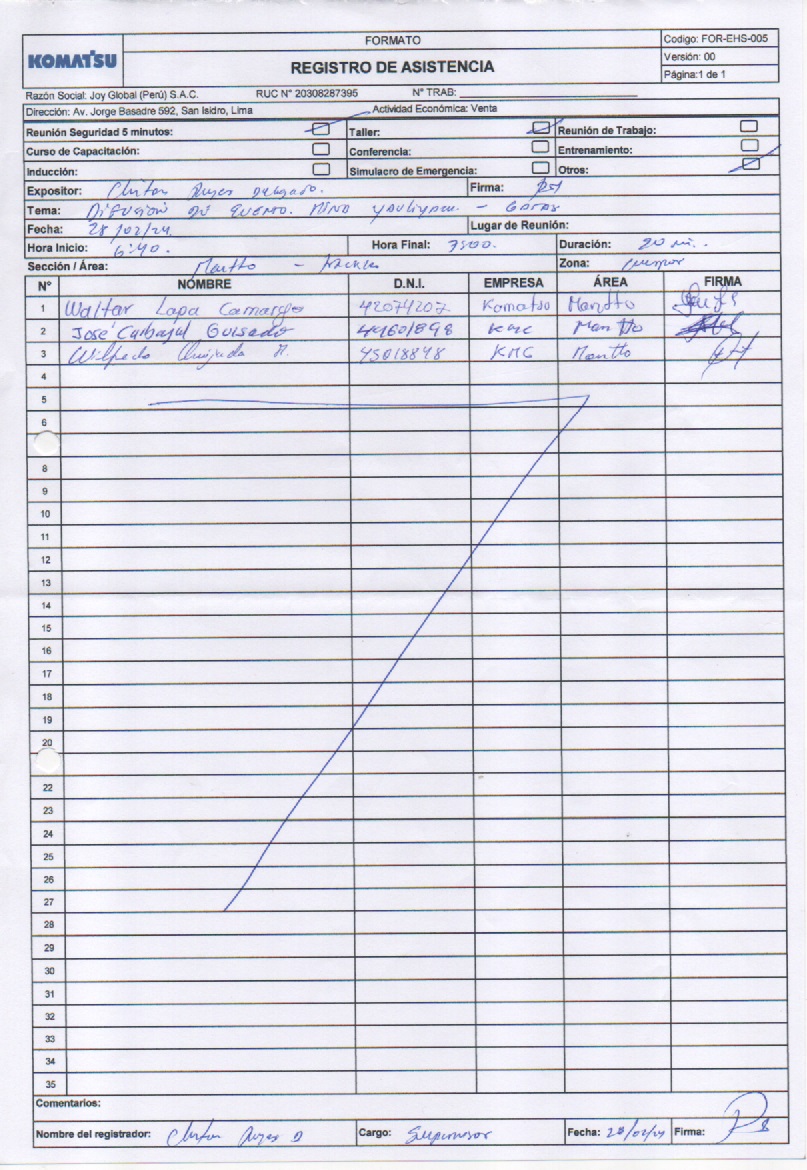 KOMATSU
FORMATO
REGISTRO DE ASISTENCIA
Codigo: FOR-EHS-005
Versión: 00
Página:1 de 1
Razón Social: Joy Global (Perú) S.A.C. RUC N° 20308287395 N° TRAB:
Dirección: Av. Jorge Basadre 592, San Isidro, Lima Actividad Económica: Venta
Reunión Seguridad 5 minutos: Taller: Reunión de Trabajo:
Curso de Capacitación: Conferencia: Entrenamiento:
Inducción: Simulacro de Emergencia: Otros:
Expositor: Clinton Reyes Delgado. Firma:
Tema: Difusion de evento. Mina Yauliyacu - Gafas
Fecha: 28/02/24 Lugar de Reunión:
Hora Inicio: 6:40. Hora Final: 7:00. Duración: 20 min.
Sección / Área: Mantto - Zona:
N° NOMBRE D.N.I. EMPRESA ÁREA FIRMA
1 Walter Lapa Camargo 42074207 Komatsu Mantto
2 José Carbajal Guisado 44601898 KMC Mantto
3 Wilfredo Quijada M. 45018848 KMC Mantto
4
5
6
8
9
10
11
12
13
14
15
16
17
18
19
20
22
23
24
25
26
27
28
29
30
31
32
33
34
35
Comentarios:
Nombre del registrador: Clinton Reyes D Cargo: Supervisor Fecha: 28/02/24 Firma: